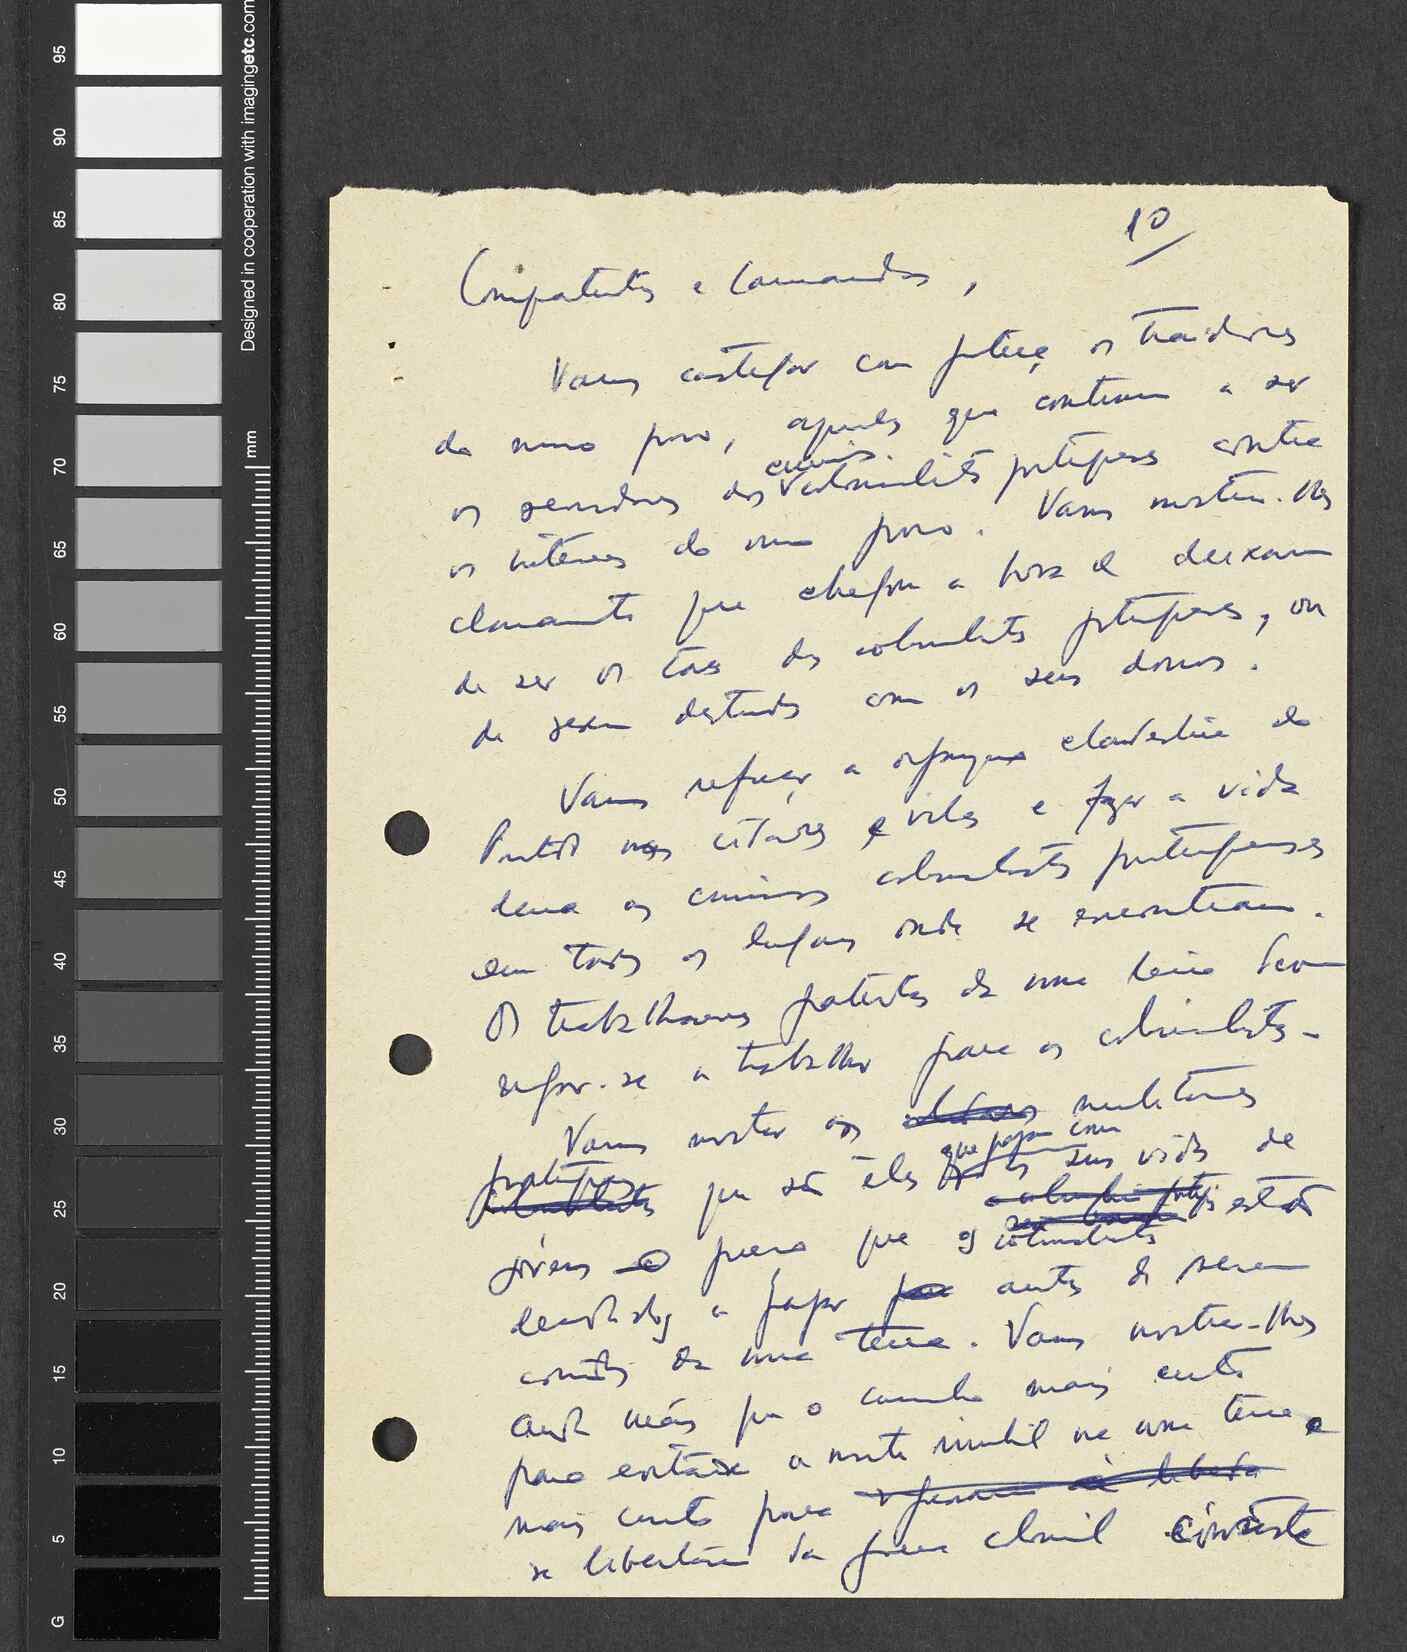 95
90
85
80
75
70
65
60
55
50
45
40
35
30
25
20
15
10
5
G
Designed in cooperation with imagingetc.com
mm
10
Compatriotas e Camaradas,
Vamos castigar com justiça os traidores
do nosso povo, aqueles que continuam a ser
os servidores dos colonialistas portugueses contra
os interesses do nosso povo. Vamos mostrar-lhes
claramente que chegou a hora de deixarem
de ser os cães dos colonialistas portugueses, ou
de serem destruídos com os seus donos.
Vamos reforçar a organização clandestina do
Partido nas cidades e vilas e fazer a vida
dura aos criminosos colonialistas portugueses
em todos os lugares onde se encontram.
Os trabalhadores patriotas da nossa terra devem
negar-se a trabalhar para os colonialistas.
Vamos mostrar aos militares
portugueses que são eles que pagam com as suas vidas de
jóvens o preço que os colonialistas estão
decididos a pagar antes de serem
corridos da nossa terra. Vamos mostrar-lhes
ainda mais que o caminho mais certo
para evitarem a morte inutil na nossa terra e
mais certo para
se libertarem da guerra colonial consiste